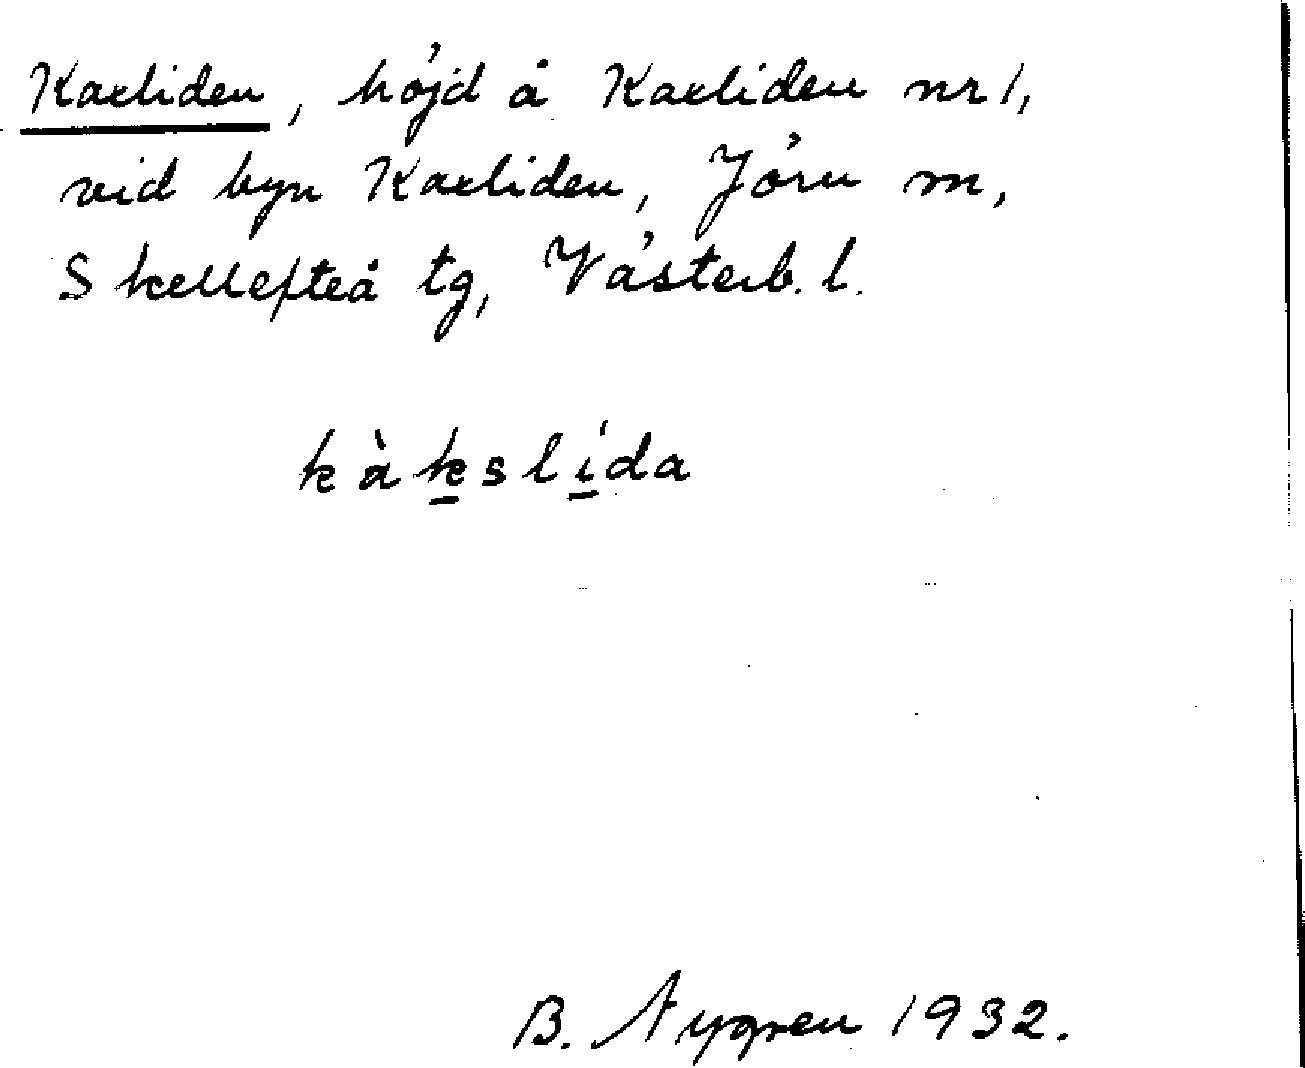 Kaxliden, höjd å Kaxliden nr 1,
vid byn Kaxliden, Jörn sn,
Skellefteå tg, Västerb. l.
kàk̲slí̲da
B. Nygren 1932.